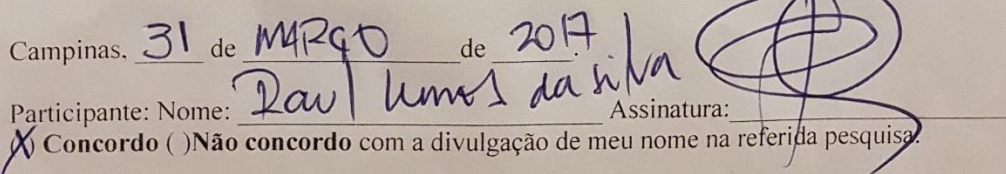 Campinas, 31 de MARÇO de 2017.
Participante: Nome: Raul Lemos da silva Assinatura:
(X) Concordo ( )Não concordo com a divulgação de meu nome na referida pesquisa.